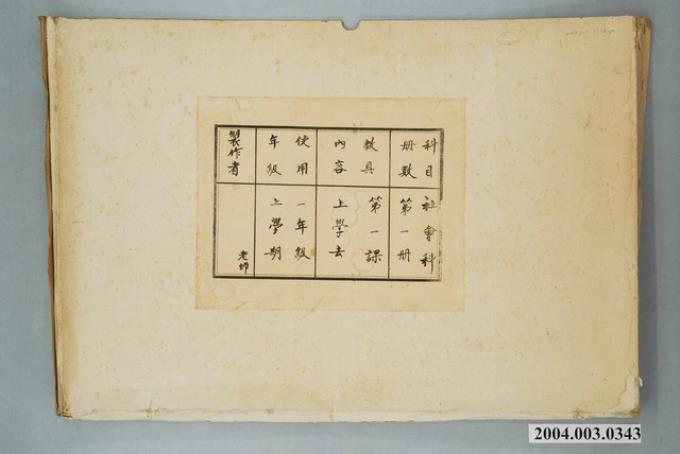 科目
冊數
社會科
第一冊
教具
內容
第一課
上學去
使用
年級
一年級
上學期
製作者
老師
2004.003.0343